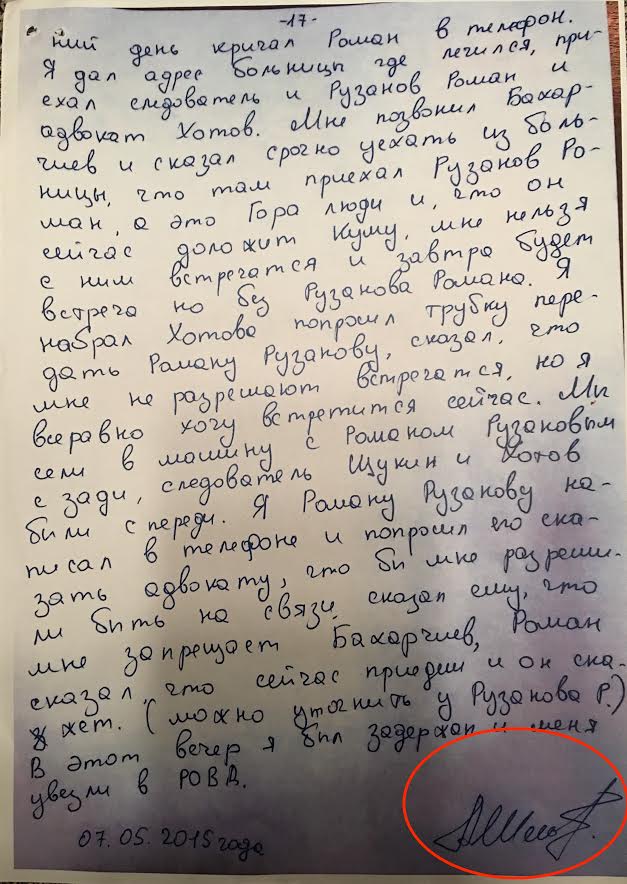 -17-
ний день кричал Роман в телефон.
Я дал адрес больницы где лечился, при-
ехал следователь и Рузанов Роман и
адвокат Хотов. Мне позвонил Бахар-
чиев и сказал срочно уехать из боль-
ницы, что там приехал Рузанов Ро-
ман, а это Гора люди и, что он
сейчас доложит Куму, мне нельзя
с ним встречатся и завтра будет
встреча но без Рузанова Романа. Я
набрал Хотова попросил трубку пере-
дать Роману Рузанову, сказал, что
мне не разрешают встречатся, но я
всеравно хочу встретится сейчас. Мы
сели в машину с Романом Рузановым
с зади, следователь Щукин и Хотов
били с переди. Я Роману Рузанову на-
писал в телефоне и попросил его ска-
зать адвокату, что би мне разреши-
ли бить на связи, сказал ему, что
мне запрещает Бахарчиев, Роман
сказал, что сейчас приедим и он ска-
жет. (можно уточнить у Рузанова Р.)
В этот вечер я бил задержан и меня
увезли в РОВД.
07.05.2015 года